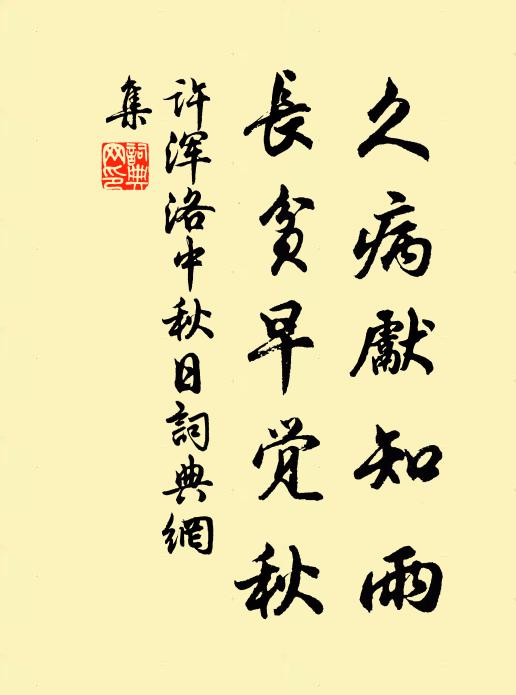 久病獻知雨
長貧早觉秋
許渾洛中秋日詞典網
集
詞典
网印